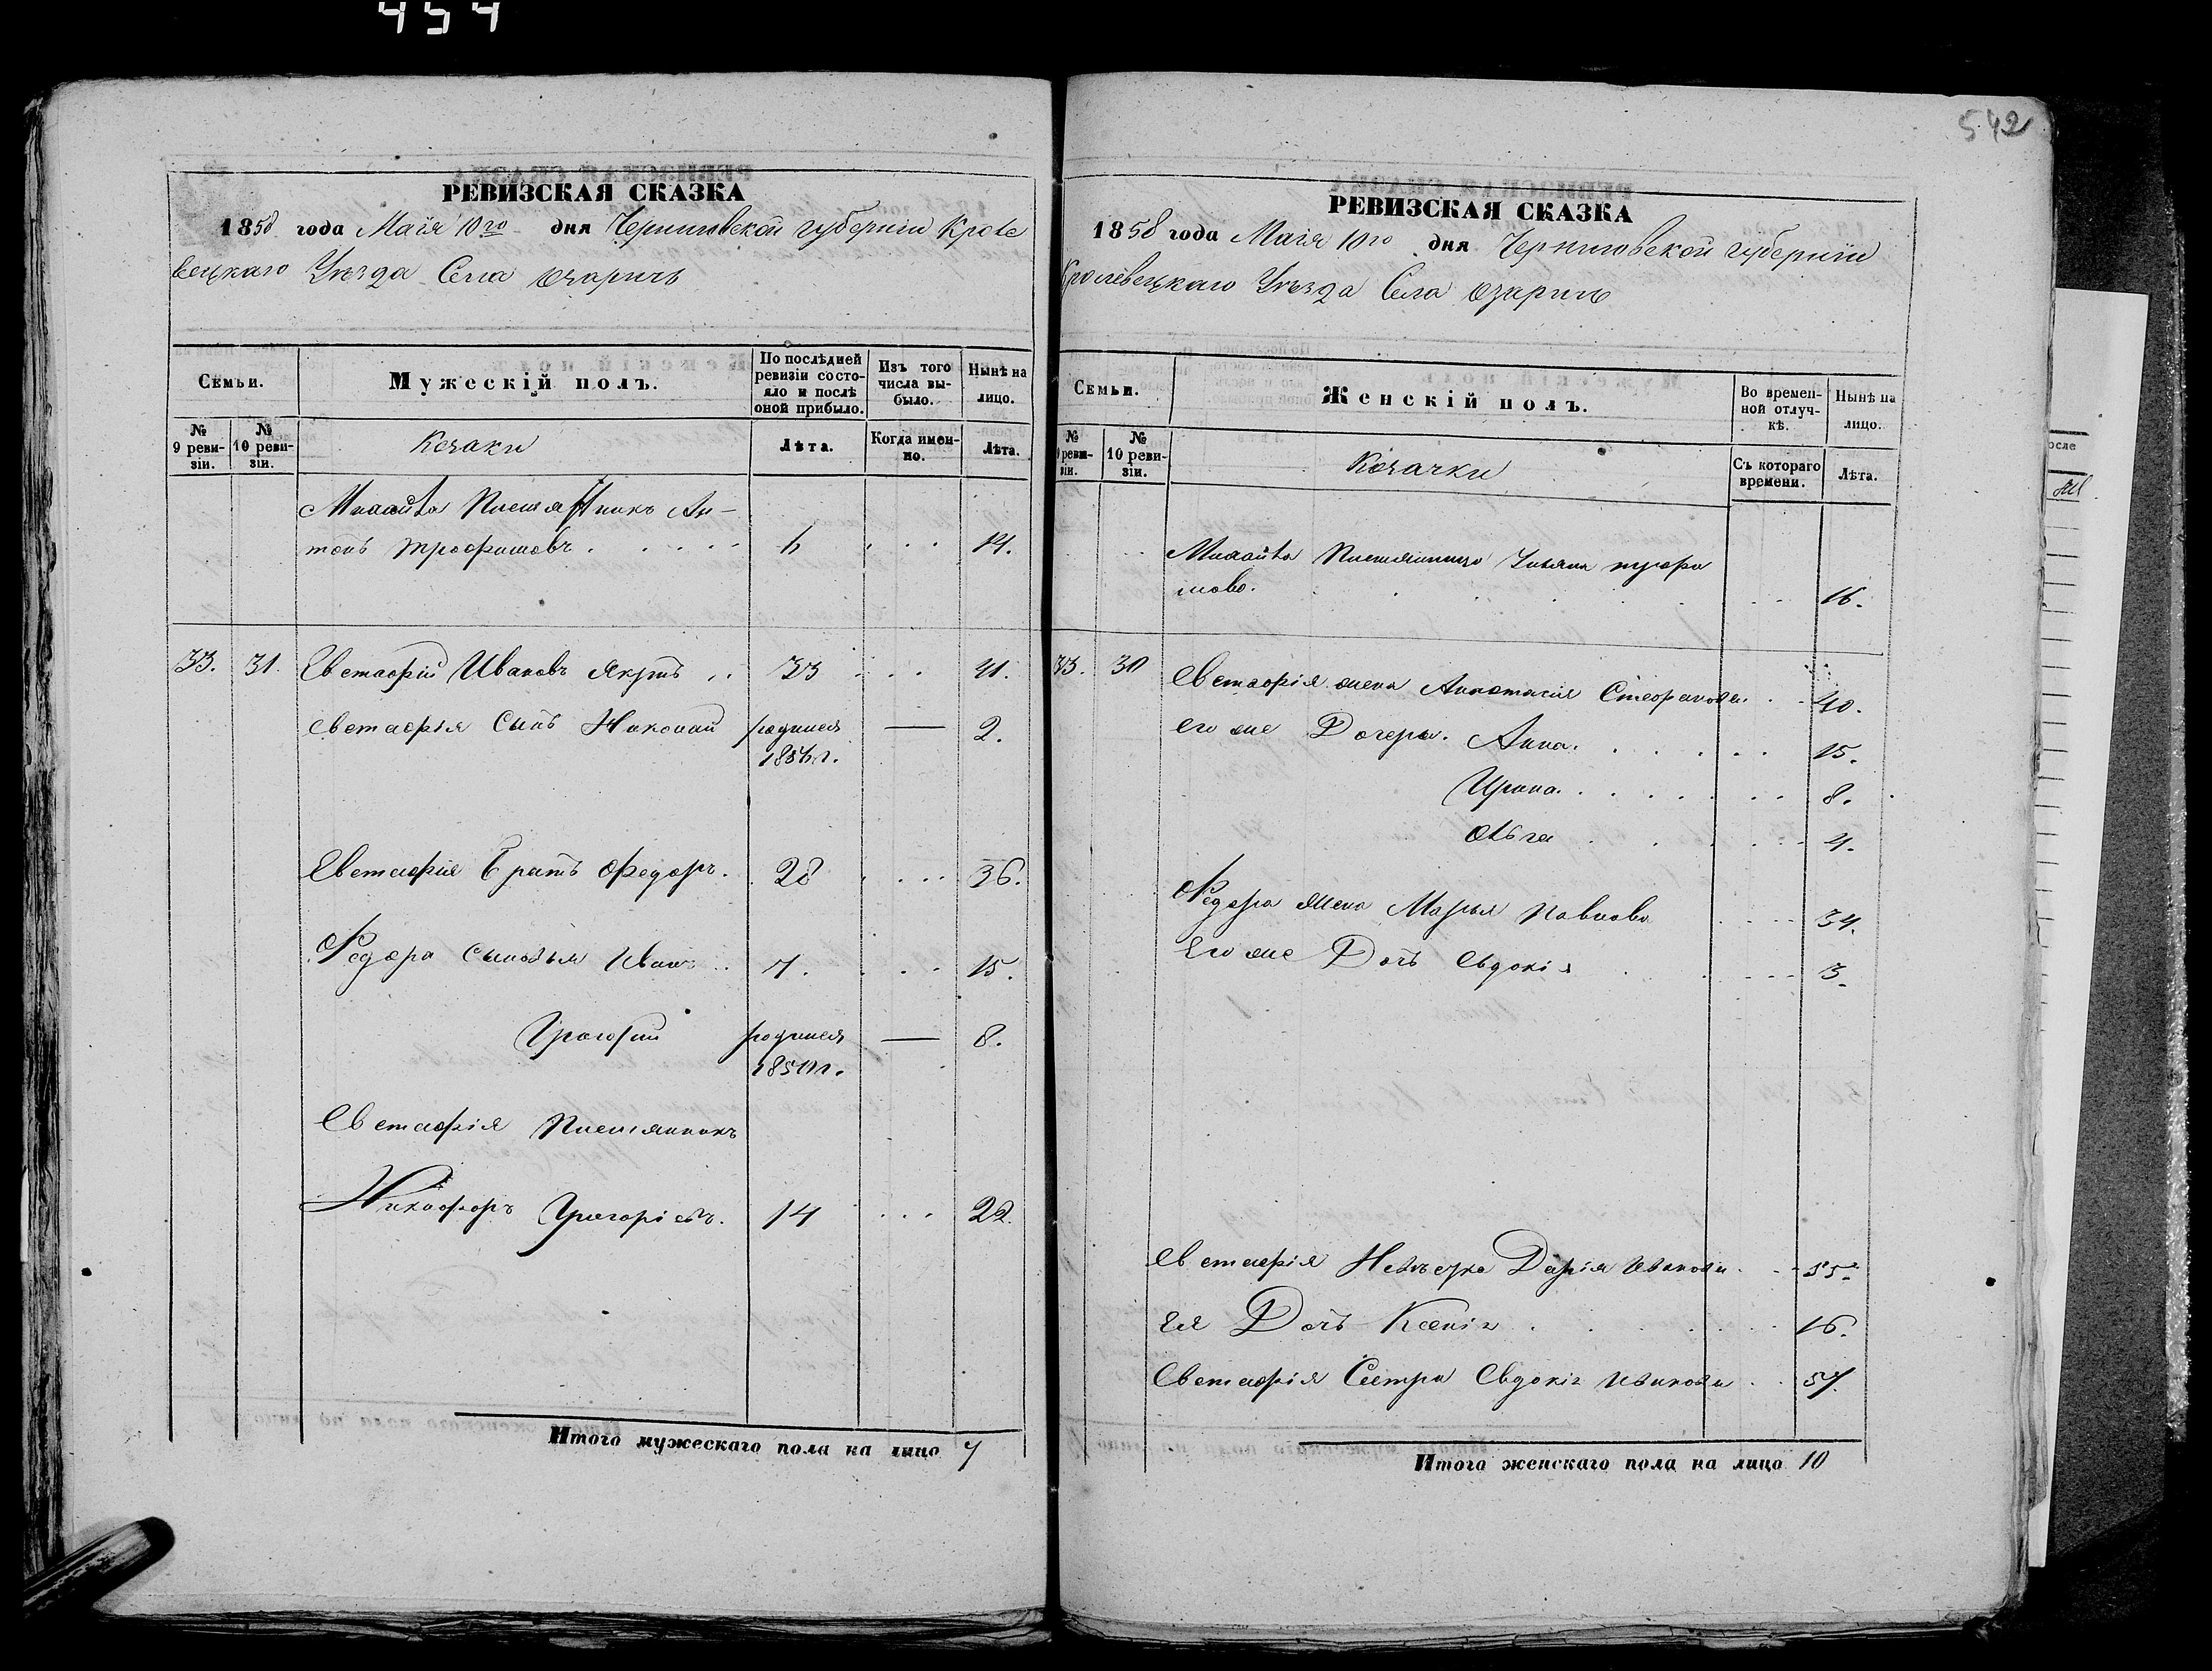 454
542
РЕВИЗСКАЯ СКАЗКА
1858 года Маія 10го дня Черниговской губерніи Кроле
вецкаго Уѣзда Села Озаричъ
Семьи.
Мужескій полъ.
По послѣдней ревизіи состояло и послѣ оной прибыло.
Изъ того числа выбыло.
Нынѣ на лицо.
№ 9 ревизіи.
№ 10 ревизіи.
Козаки
Лѣта.
Когда именно.
Лѣта.
Племянникъ Ан-
тонъ Трофимовъ 6 14.
33. 31. Евстафій Ивановъ 33 41.
Евстафія Сынъ Николай родился — 2.
1856 г.
Евстафія Братъ Федоръ. 28 36.
Федора Сыновья Иванъ 7. 15.
Григорій родился — 8.
1850 г.
Евстафія Племянникъ
Никифоръ Григоріевъ. 14 22.
Итого мужескаго пола на лицо 7
РЕВИЗСКАЯ СКАЗКА
1858 года Маія 10го дня Черниговской губерніи
Кролевецкаго Уѣзда Села Озаричъ
Семьи.
Женскій полъ.
Во временной отлучкѣ.
Нынѣ на лицо.
№ 9 ревизіи.
№ 10 ревизіи.
Козачки
Съ котораго времени.
Лѣта.
Племянница Ульяна
мова. 16.
33. 30 Евстафія жена Анастасия Стефанова 40.
его же Дочери. Анна. 15.
Ирина. 8.
Ольга 4.
Федора жена Марья Павлова 34.
Его же Дочь Евдокія 3.
Евстафія Невѣстка Дарія Иванова 55.
Ея Дочь Ксенія 16.
Евстафія Сестра Евдокія Иванова 57.
Итого женскаго пола на лицо 10
осле